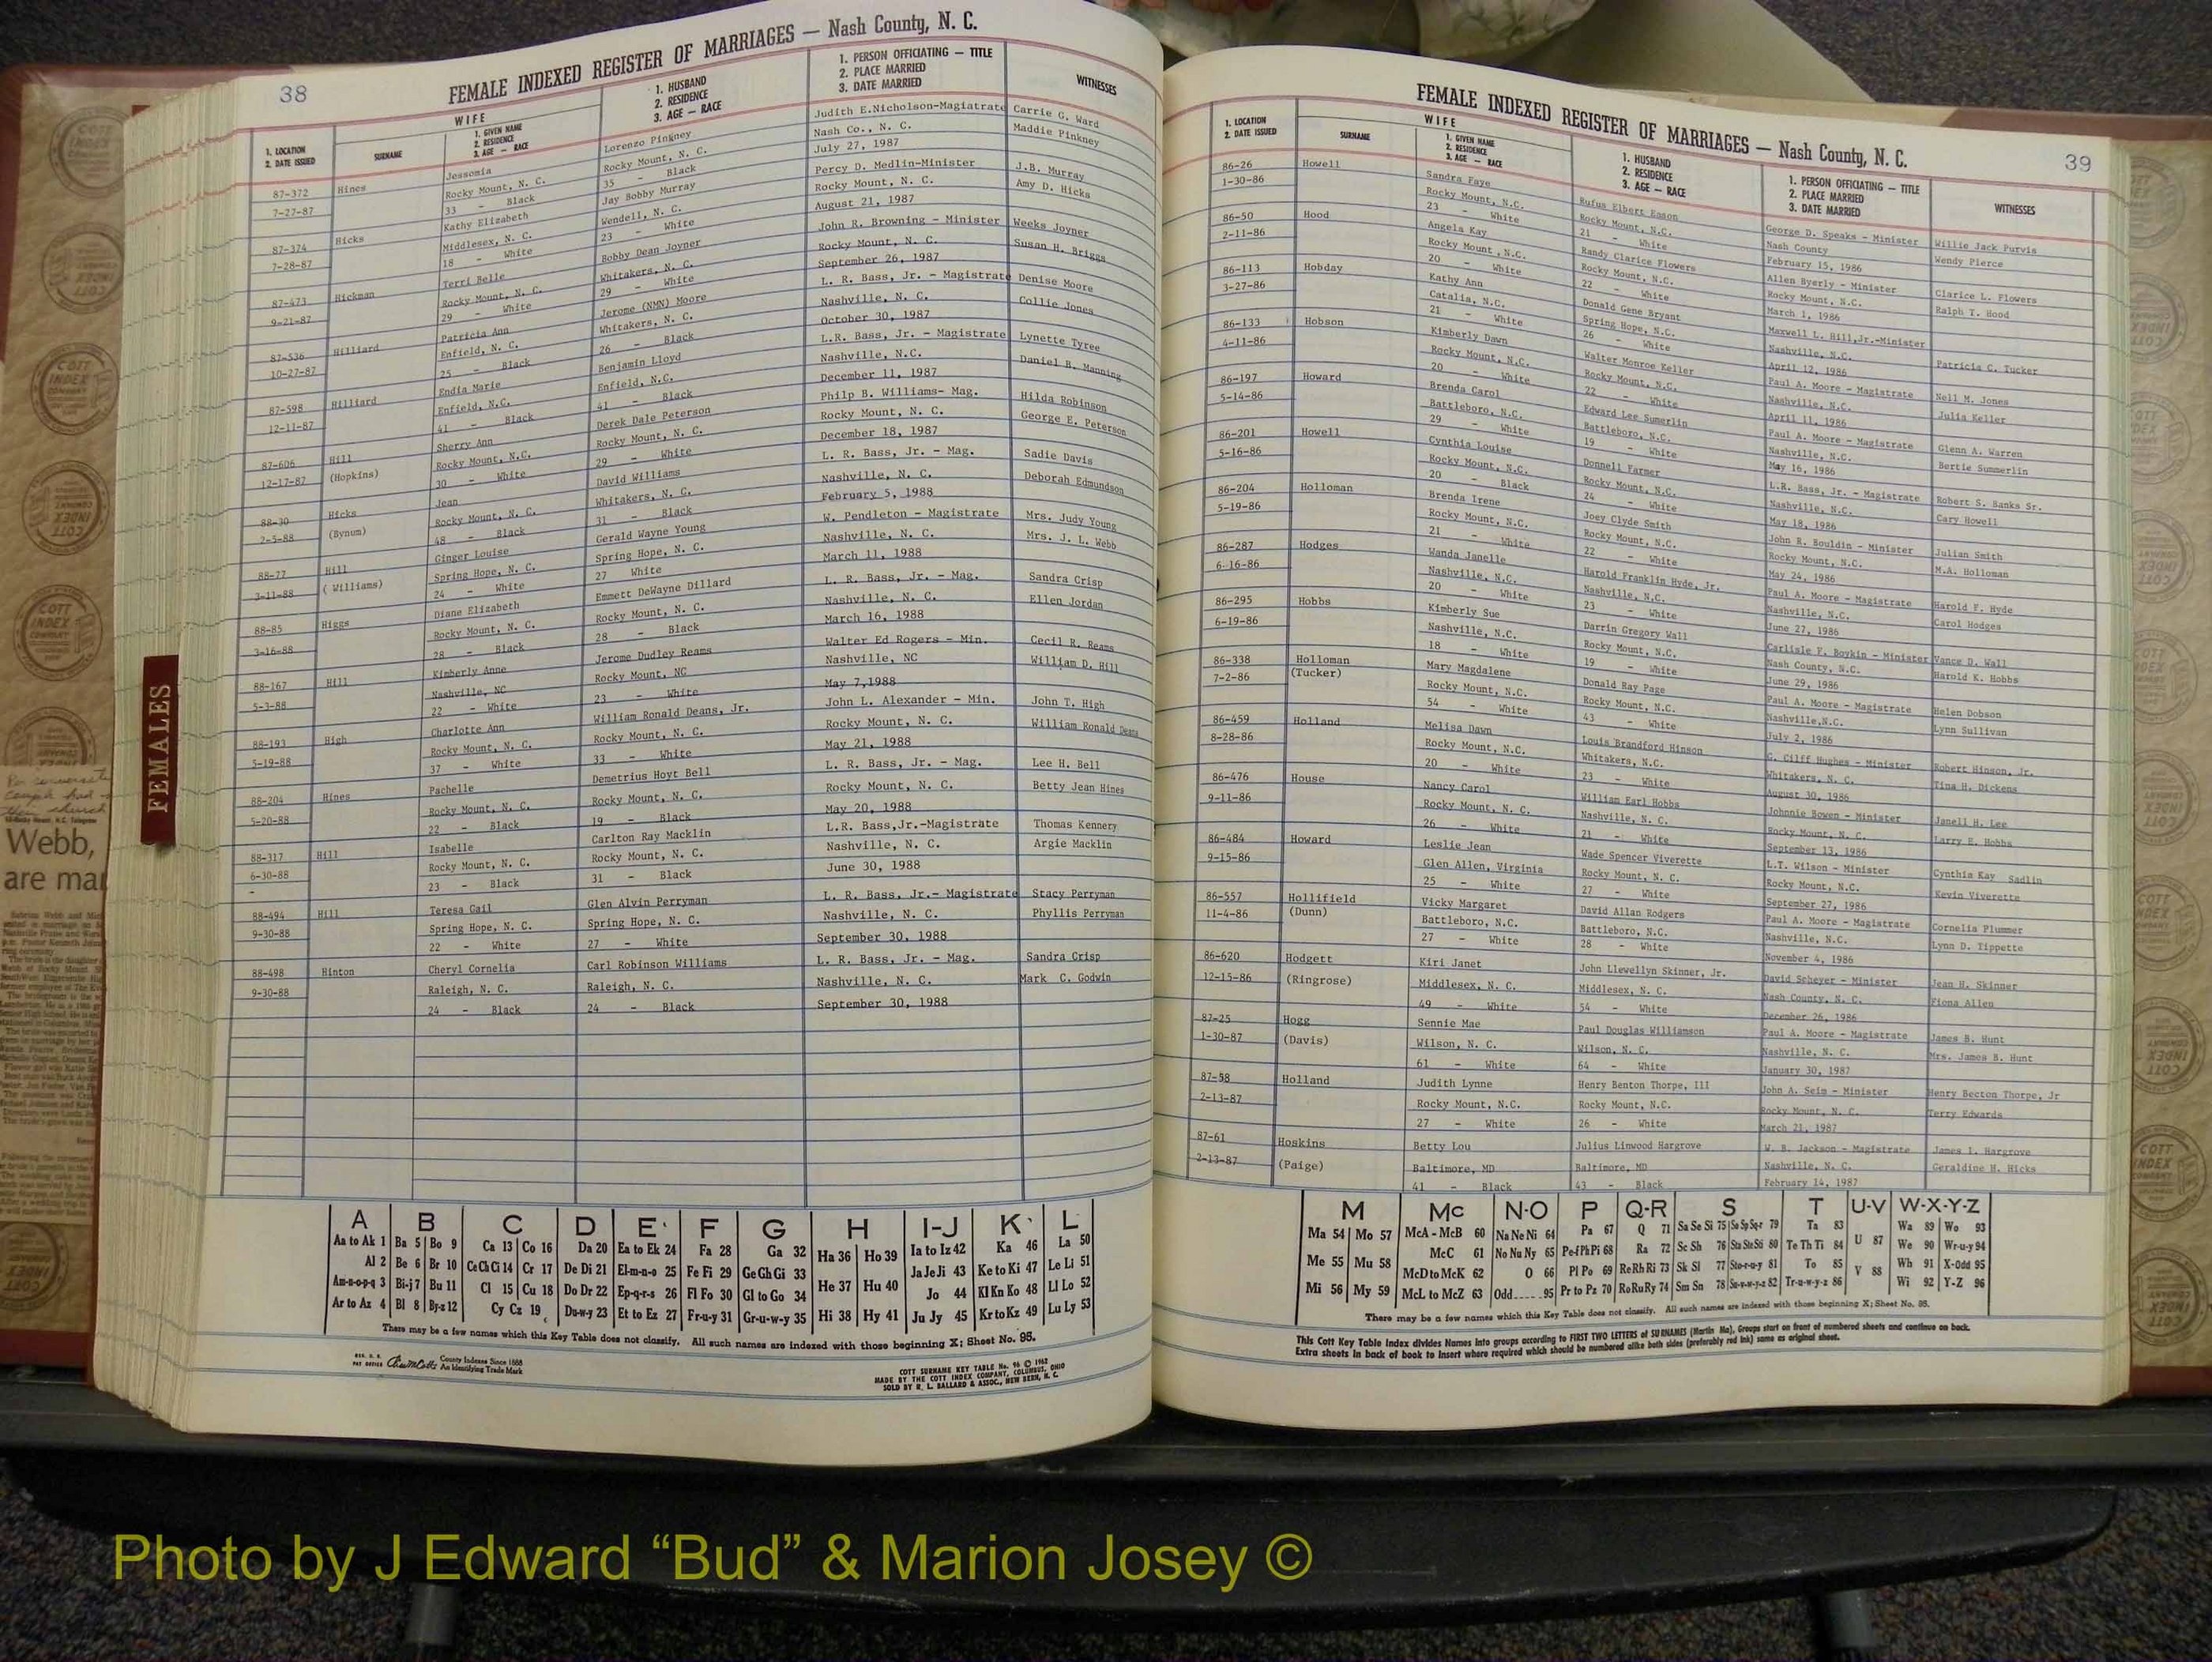 38
FEMALE INDEXED REGISTER OF MARRIAGES — Nash County, N. C.
1. LOCATION
2. DATE ISSUED
WIFE
SURNAME
1. GIVEN NAME
2. RESIDENCE
3. AGE — RACE
1. HUSBAND
2. RESIDENCE
3. AGE — RACE
1. PERSON OFFICIATING — TITLE
2. PLACE MARRIED
3. DATE MARRIED
WITNESSES
87-372 Hines Jessomia Lorenzo Pinkney Judith E.Nicholson-Magiatrate Carrie G. Ward
7-27-87 Rocky Mount, N. C. Rocky Mount, N. C. Nash Co., N. C. Maddie Pinkney
33 - Black 35 - Black July 27, 1987
87-374 Hicks Kathy Elizabeth Jay Bobby Murray Percy D. Medlin-Minister J.B. Murray
7-28-87 Middlesex, N. C. Wendell, N. C. Rocky Mount, N. C. Amy D. Hicks
18 - White 23 - White August 21, 1987
87-473 Hickman Terri Belle Bobby Dean Joyner John R. Browning - Minister Weeks Joyner
9-21-87 Rocky Mount, N. C. Whitakers, N. C. Rocky Mount, N. C. Susan H. Briggs
29 - White 29 - White September 26, 1987
87-536 Hilliard Patricia Ann Jerome (NMN) Moore L. R. Bass, Jr. - Magistrate Denise Moore
10-27-87 Enfield, N. C. Whitakers, N. C. Nashville, N. C. Collie Jones
25 - Black 26 - Black October 30, 1987
87-598 Hilliard Endia Marie Benjamin Lloyd L.R. Bass, Jr. - Magistrate Lynette Tyree
12-11-87 Enfield, N.C. Enfield, N.C. Nashville, N.C. Daniel B. Manning
41 - Black 41 - Black December 11, 1987
87-606 Hill Sherry Ann Derek Dale Peterson Philp B. Williams- Mag. Hilda Robinson
12-17-87 (Hopkins) Rocky Mount, N.C. Rocky Mount, N. C. Rocky Mount, N. C. George E. Peterson
30 - White 29 - White December 18, 1987
88-30 Hicks Jean David Williams L. R. Bass, Jr. - Mag. Sadie Davis
2-5-88 (Bynum) Rocky Mount, N. C. Whitakers, N. C. Nashville, N. C. Deborah Edmundson
48 - Black 31 - Black February 5, 1988
88-77 Hill Ginger Louise Gerald Wayne Young W. Pendleton - Magistrate Mrs. Judy Young
3-11-88 ( Williams) Spring Hope, N. C. Spring Hope, N. C. Nashville, N. C. Mrs. J. L. Webb
24 - White 27 White March 11, 1988
88-85 Higgs Diane Elizabeth Emmett DeWayne Dillard L. R. Bass, Jr. - Mag. Sandra Crisp
3-16-88 Rocky Mount, N. C. Rocky Mount, N. C. Nashville, N. C. Ellen Jordan
28 - Black 28 - Black March 16, 1988
88-167 Hill Kimberly Anne Jerome Dudley Reams Walter Ed Rogers - Min. Cecil R. Reams
5-3-88 Nashville, NC Rocky Mount, NC Nashville, NC William D. Hill
22 - White 23 - White May 7,1988
88-193 High Charlotte Ann William Ronald Deans, Jr. John L. Alexander - Min. John T. High
5-19-88 Rocky Mount, N. C. Rocky Mount, N. C. Rocky Mount, N. C. William Ronald Deans
37 - White 33 - White May 21, 1988
88-204 Hines Pachelle Demetrius Hoyt Bell L. R. Bass, Jr. - Mag. Lee H. Bell
5-20-88 Rocky Mount, N. C. Rocky Mount, N. C. Rocky Mount, N. C. Betty Jean Hines
22 - Black 19 - Black May 20, 1988
88-317 Hill Isabelle Carlton Ray Macklin L.R. Bass,Jr.-Magistrate Thomas Kennery
6-30-88 Rocky Mount, N. C. Rocky Mount, N. C. Nashville, N. C. Argie Macklin
- 23 - Black 31 - Black June 30, 1988
88-494 Hill Teresa Gail Glen Alvin Perryman L. R. Bass, Jr.- Magistrate Stacy Perryman
9-30-88 Spring Hope, N. C. Spring Hope, N. C. Nashville, N. C. Phyllis Perryman
22 - White 27 - White September 30, 1988
88-498 Hinton Cheryl Cornelia Carl Robinson Williams L. R. Bass, Jr. - Mag. Sandra Crisp
9-30-88 Raleigh, N. C. Raleigh, N. C. Nashville, N. C. Mark C. Godwin
24 - Black 24 - Black September 30, 1988
A B C D E F G H I-J K L
Aa to Ak 1 Ba 5 Bo 9 Ca 13 Co 16 Da 20 Ea to Ek 24 Fa 28 Ga 32 Ha 36 Ho 39 Ia to Iz 42 Ka 46 La 50
Al 2 Be 6 Br 10 Ce Ch Ci 14 Cr 17 De Di 21 El-m-n-o 25 Fe Fi 29 Ge Gh Gi 33 He 37 Hu 40 Ja Je Ji 43 Ke to Ki 47 Le Li 51
Am-n-o-p-q 3 Bi-j 7 Bu 11 Cl 15 Cu 18 Do Dr 22 Ep-q-r-s 26 Fl Fo 30 Gl to Go 34 Hi 38 Hy 41 Jo 44 Kl Kn Ko 48 Ll Lo 52
Ar to Az 4 Bl 8 By-z 12 Cy Cz 19 Du-w-y 23 Et to Ez 27 Fr-u-y 31 Gr-u-w-y 35 Ju Jy 45 Kr to Kz 49 Lu Ly 53
There may be a few names which this Key Table does not classify. All such names are indexed with those beginning X; Sheet No. 95.
County Indexes Since 1888
An Identifying Trade Mark
COTT SURNAME KEY TABLE No. 96 © 1962
MADE BY THE COTT INDEX COMPANY, COLUMBUS, OHIO
SOLD BY R. L. BALLARD & ASSOC., NEW BERN, N. C.
FEMALE INDEXED REGISTER OF MARRIAGES — Nash County, N. C.
39
1. LOCATION
2. DATE ISSUED
WIFE
SURNAME
1. GIVEN NAME
2. RESIDENCE
3. AGE — RACE
1. HUSBAND
2. RESIDENCE
3. AGE — RACE
1. PERSON OFFICIATING — TITLE
2. PLACE MARRIED
3. DATE MARRIED
WITNESSES
86-26 Howell Sandra Faye Rufus Elbert Eason George D. Speaks - Minister Willie Jack Purvis
1-30-86 Rocky Mount, N.C. Rocky Mount, N.C. Nash County Wendy Pierce
23 - White 21 - White February 15, 1986
86-50 Hood Angela Kay Randy Clarice Flowers Allen Byerly - Minister Clarice L. Flowers
2-11-86 Rocky Mount ,N.C. Rocky Mount, N.C. Rocky Mount, N.C. Ralph T. Hood
20 - White 22 - White March 1, 1986
86-113 Hobday Kathy Ann Donald Gene Bryant Maxwell L. Hill,Jr.-Minister
3-27-86 Catalia, N.C. Spring Hope, N.C. Nashville, N.C. Patricia C. Tucker
21 - White 26 - White April 12, 1986
86-133 Hobson Kimberly Dawn Walter Monroe Keller Paul A. Moore - Magistrate Nell M. Jones
4-11-86 Rocky Mount, N.C. Rocky Mount, N.C. Nashville, N.C. Julia Keller
20 - White 22 - White April 11, 1986
86-197 Howard Brenda Carol Edward Lee Sumerlin Paul A. Moore - Magistrate Glenn A. Warren
5-14-86 Battleboro, N.C. Battleboro, N.C. Nashville, N.C. Bertie Summerlin
29 - White 19 - White May 16, 1986
86-201 Howell Cynthia Louise Donnell Farmer L.R. Bass, Jr. - Magistrate Robert S. Banks Sr.
5-16-86 Rocky Mount, N.C. Rocky Mount, N.C. Nashville, N.C. Cary Howell
20 - Black 24 - White May 18, 1986
86-204 Holloman Brenda Irene Joey Clyde Smith John R. Bouldin - Minister Julian Smith
5-19-86 Rocky Mount, N.C. Rocky Mount, N.C. Rocky Mount, N.C. M.A. Holloman
21 - White 22 - White May 24, 1986
86-287 Hodges Wanda Janelle Harold Franklin Hyde, Jr. Paul A. Moore - Magistrate Harold F. Hyde
6-16-86 Nashville, N.C. Nashville, N.C. Nashville, N.C. Carol Hodges
20 - White 23 - White June 27, 1986
86-295 Hobbs Kimberly Sue Darrin Gregory Wall Carlisle F. Boykin - Minister Vance D. Wall
6-19-86 Nashville, N.C. Rocky Mount, N.C. Nash County, N.C. Harold K. Hobbs
18 - White 19 - White June 29, 1986
86-338 Holloman Mary Magdalene Donald Ray Page Paul A. Moore - Magistrate Helen Dobson
7-2-86 (Tucker) Rocky Mount, N.C. Rocky Mount, N.C. Nashville,N.C. Lynn Sullivan
54 - White 43 - White July 2, 1986
86-459 Holland Melisa Dawn Louis Brandford Hinson G. Cliff Hughes - Minister Robert Hinson, Jr.
8-28-86 Rocky Mount, N.C. Whitakers, N.C. Whitakers, N. C. Tina H. Dickens
20 - White 23 - White August 30, 1986
86-476 House Nancy Carol William Earl Hobbs Johnnie Bowen - Minister Janell H. Lee
9-11-86 Rocky Mount, N. C. Nashville, N. C. Rocky Mount, N. C. Larry E. Hobbs
26 - White 21 - White September 13, 1986
86-484 Howard Leslie Jean Wade Spencer Viverette L.T. Wilson - Minister Cynthia Kay Sadlin
9-15-86 Glen Allen, Virginia Rocky Mount, N. C. Rocky Mount, N. C. Kevin Viverette
25 - White 27 - White September 27, 1986
86-557 Hollifield Vicky Margaret David Allan Rodgers Paul A. Moore - Magistrate Cornelia Plummer
11-4-86 (Dunn) Battleboro, N.C. Battleboro, N.C. Nashville, N.C. Lynn D. Tippette
27 - White 28 - White November 4, 1986
86-620 Hodgett Kiri Janet John Llewellyn Skinner, Jr. David Scheyer - Minister Jean H. Skinner
12-15-86 (Ringrose) Middlesex, N. C. Middlesex, N. C. Nash County, N. C. Fiona Allen
49 - White 54 - White December 26, 1986
87-25 Hogg Sennie Mae Paul Douglas Williamson Paul A. Moore - Magistrate James B. Hunt
1-30-87 (Davis) Wilson, N. C. Wilson, N. C. Nashville, N. C. Mrs. James B. Hunt
61 - White 64 - White January 30, 1987
87-58 Holland Judith Lynne Henry Benton Thorpe, III John A. Seim - Minister Henry Becton Thorpe, Jr
2-13-87 Rocky Mount, N.C. Rocky Mount, N.C. Rocky Mount, N. C. Terry Edwards
27 - White 26 - White March 21, 1987
87-61 Hoskins Betty Lou Julius Linwood Hargrove W. B. Jackson - Magistrate James I. Hargrove
2-13-87 (Paige) Baltimore, MD Baltimore, MD Nashville, N. C. Geraldine H. Hicks
41 - Black 43 - Black February 14, 1987
M Mc N-O P Q-R S T U-V W-X-Y-Z
Ma 54 Mo 57 McA - McB 60 Na Ne Ni 64 Pa 67 Q 71 Sa Se Si 75 So Sp Sq-r 79 Ta 83 U 87 Wa 89 Wo 93
Me 55 Mu 58 McC 61 No Nu Ny 65 Pe-f Ph Pi 68 Ra 72 Sc Sh 76 Sta Ste Sti 80 Te Th Ti 84 V 88 We 90 Wr-u-y 94
Mi 56 My 59 McD to McK 62 O 66 Pl Po 69 Re Rh Ri 73 Sk Sl 77 Sto-r-u-y 81 To 85 Wh 91 X-Odd 95
McL to McZ 63 Odd 95 Pr to Pz 70 Ro Ru Ry 74 Sm Sn 78 Su-v-w-y-z 82 Tr-u-w-y-z 86 Wi 92 Y-Z 96
There may be a few names which this Key Table does not classify. All such names are indexed with those beginning X; Sheet No. 95.
This Cott Key Table Index divides Names into groups according to FIRST TWO LETTERS of SURNAMES (Martin Ma), Groups start on front of numbered sheets and continue on back.
Extra sheets in back of book to insert where required which should be numbered alike both sides (preferably red ink) same as original sheet.
FEMALES
Webb,
are mar
COTT
INDEX
COMPANY
Photo by J Edward “Bud” & Marion Josey ©